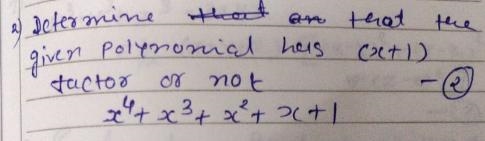 2) Determine that the
given Polynomial has (x+1)
factor or not - ②
x⁴+ x³+ x²+ x+1